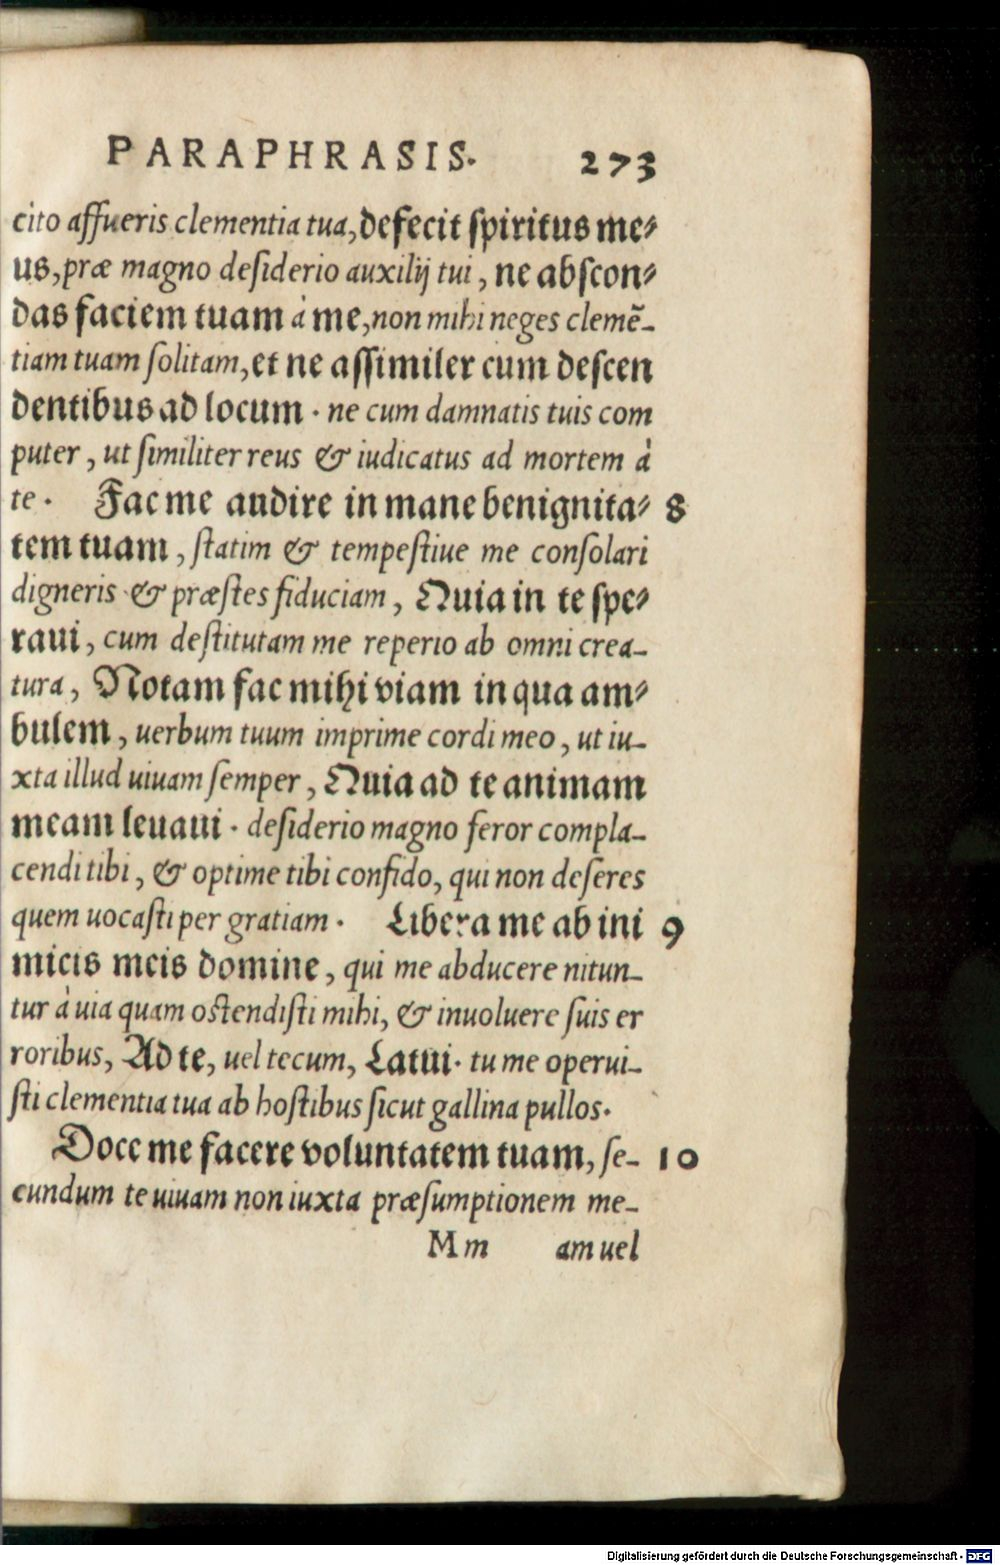 PARAPHRASIS. 273
cito affueris clementia tua, defecit spiritus me⸗
us, præ magno desiderio auxilij tui, ne abscon⸗
das faciem tuam à me, non mihi neges clemẽ-
tiam tuam solitam, et ne assimiler cum descen
dentibus ad locum. ne cum damnatis tuis com
puter, ut similiter reus & iudicatus ad mortem à
te. Fac me audire in mane benignita⸗ 8
tem tuam, statim & tempestiue me consolari
digneris & præstes fiduciam, Quia in te spe⸗
raui, cum destitutam me reperio ab omni crea-
tura, Notam fac mihi viam in qua am⸗
bulem, uerbum tuum imprime cordi meo, ut iu-
xta illud uiuam semper, Quia ad te animam
meam leuaui. desiderio magno feror compla-
cendi tibi, & optime tibi confido, qui non deseres
quem uocasti per gratiam. Libera me ab ini 9
micis meis domine, qui me abducere nitun-
tur à uia quam ostendisti mihi, & inuoluere suis er
roribus, Ad te, uel tecum, Latui. tu me operui-
sti clementia tua ab hostibus sicut gallina pullos.
Doce me facere voluntatem tuam, se- 10
cundum te uiuam non iuxta præsumptionem me-
Mm am uel
Digitalisierung gefördert durch die Deutsche Forschungsgemeinschaft - DFG